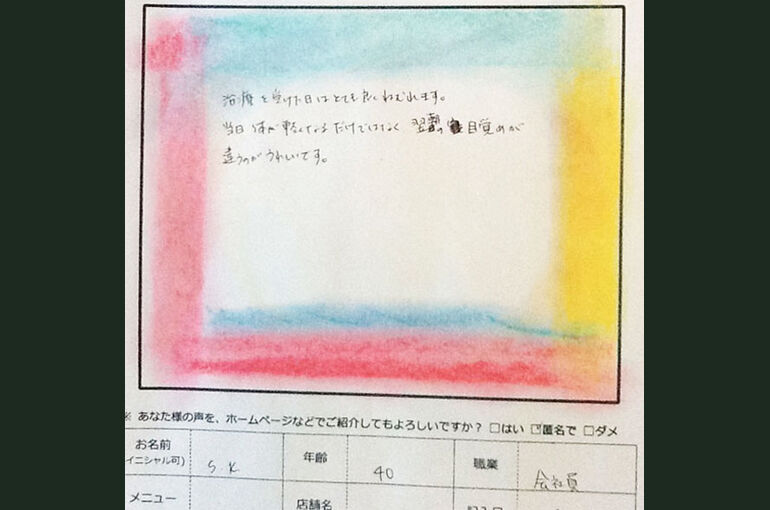 治療を受けた日はとても良くねむれます。
当日 体が軽くなるだけではなく 翌朝の目覚めが
違うのがうれしいです。
※ あなた様の声を、ホームページなどでご紹介してもよろしいですか? □はい ☑匿名で □ダメ
お名前 年齢 職業
イニシャル可) S.K 40 会社員
メニュー 店舗名